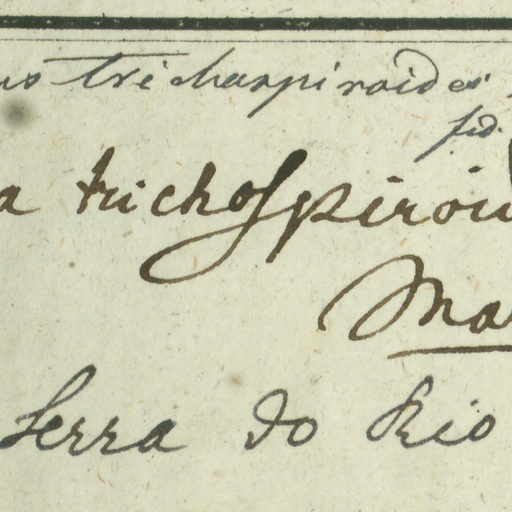 us trichaspiroides
fid.
a trichospiroid
Mar
Serra do Rio